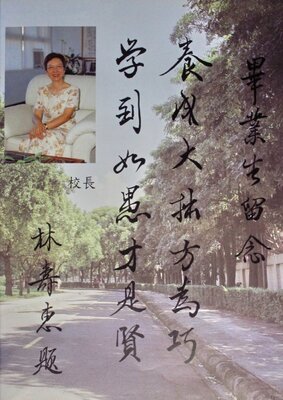 畢業生留念
養成大拙方為巧
学到如愚才是賢
校長
林壽惠題